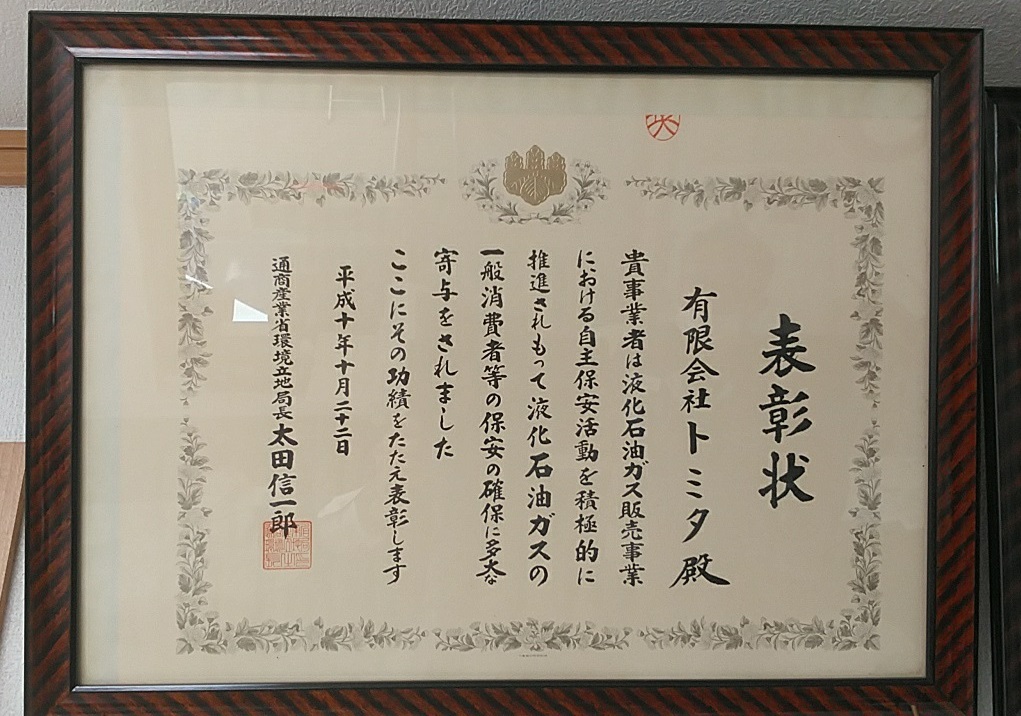 表彰状
有限会社トミタ殿
貴事業者は液化石油ガス販売事業
における自主保安活動を積極的に
推進されもって液化石油ガスの
一般消費者等の保安の確保に多大な
寄与をされました
ここにその功績をたたえ表彰します
平成十年十月二十二日
通商産業省環境立地局長 太田信一郎